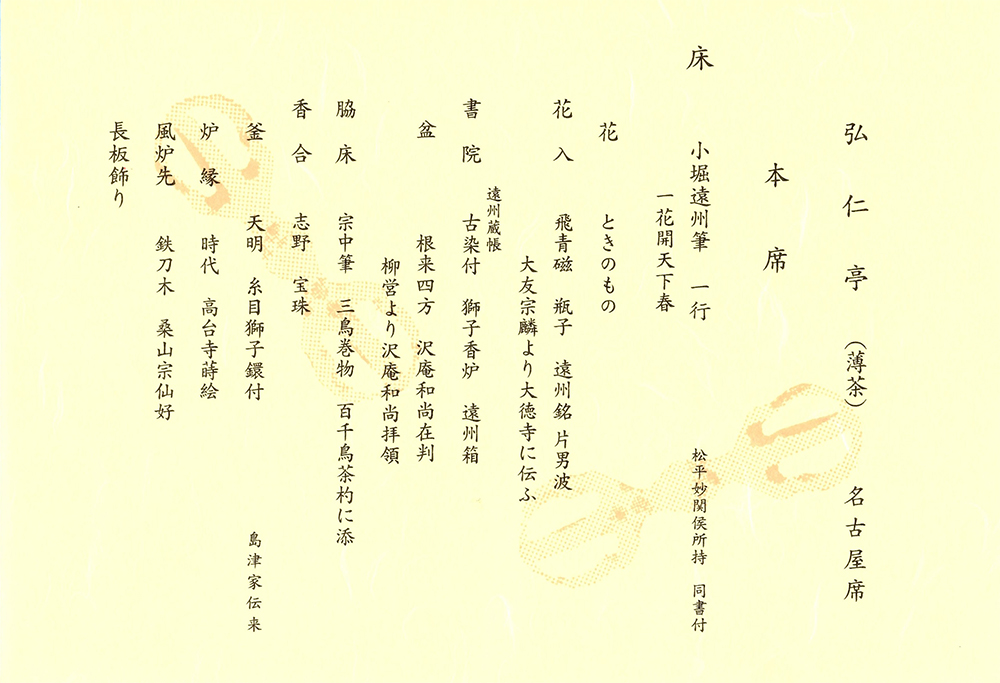 弘仁亭 （薄茶） 名古屋席
本席
床 小堀遠州筆 一行 松平妙関侯所持 同書付
一花開天下春
花 ときのもの
花入 飛青磁 瓶子 遠州銘 片男波
大友宗麟より大徳寺に伝ふ
遠州蔵帳
書院 古染付 獅子香炉 遠州箱
盆 根来四方 沢庵和尚在判
柳営より沢庵和尚拝領
脇床 宗中筆 三鳥巻物 百千鳥茶杓に添
香合 志野 宝珠
釜 天明 糸目獅子鐶付 島津家伝来
炉縁 時代 高台寺蒔絵
風炉先 鉄刀木 桑山宗仙好
長板飾り